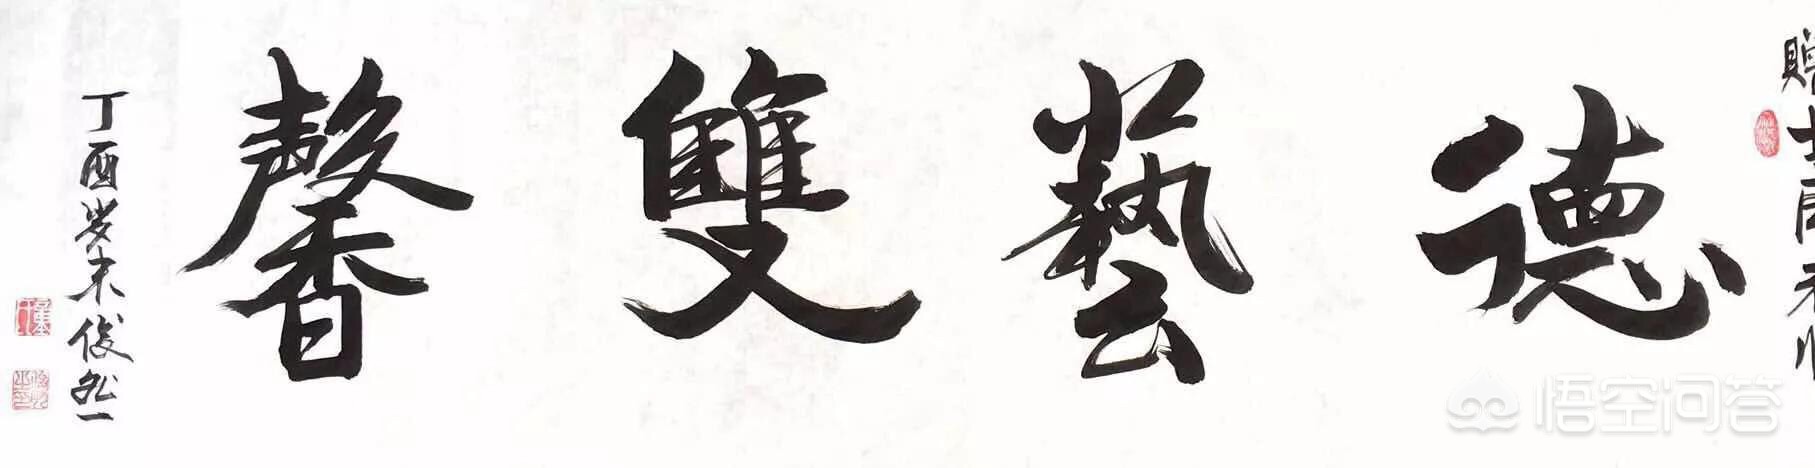 德藝雙馨
丁酉岁末俊
悟空问答